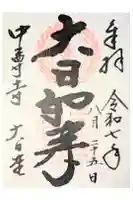 奉拝
令和七年
八月二十五日
大日如来
中尊寺 大日堂